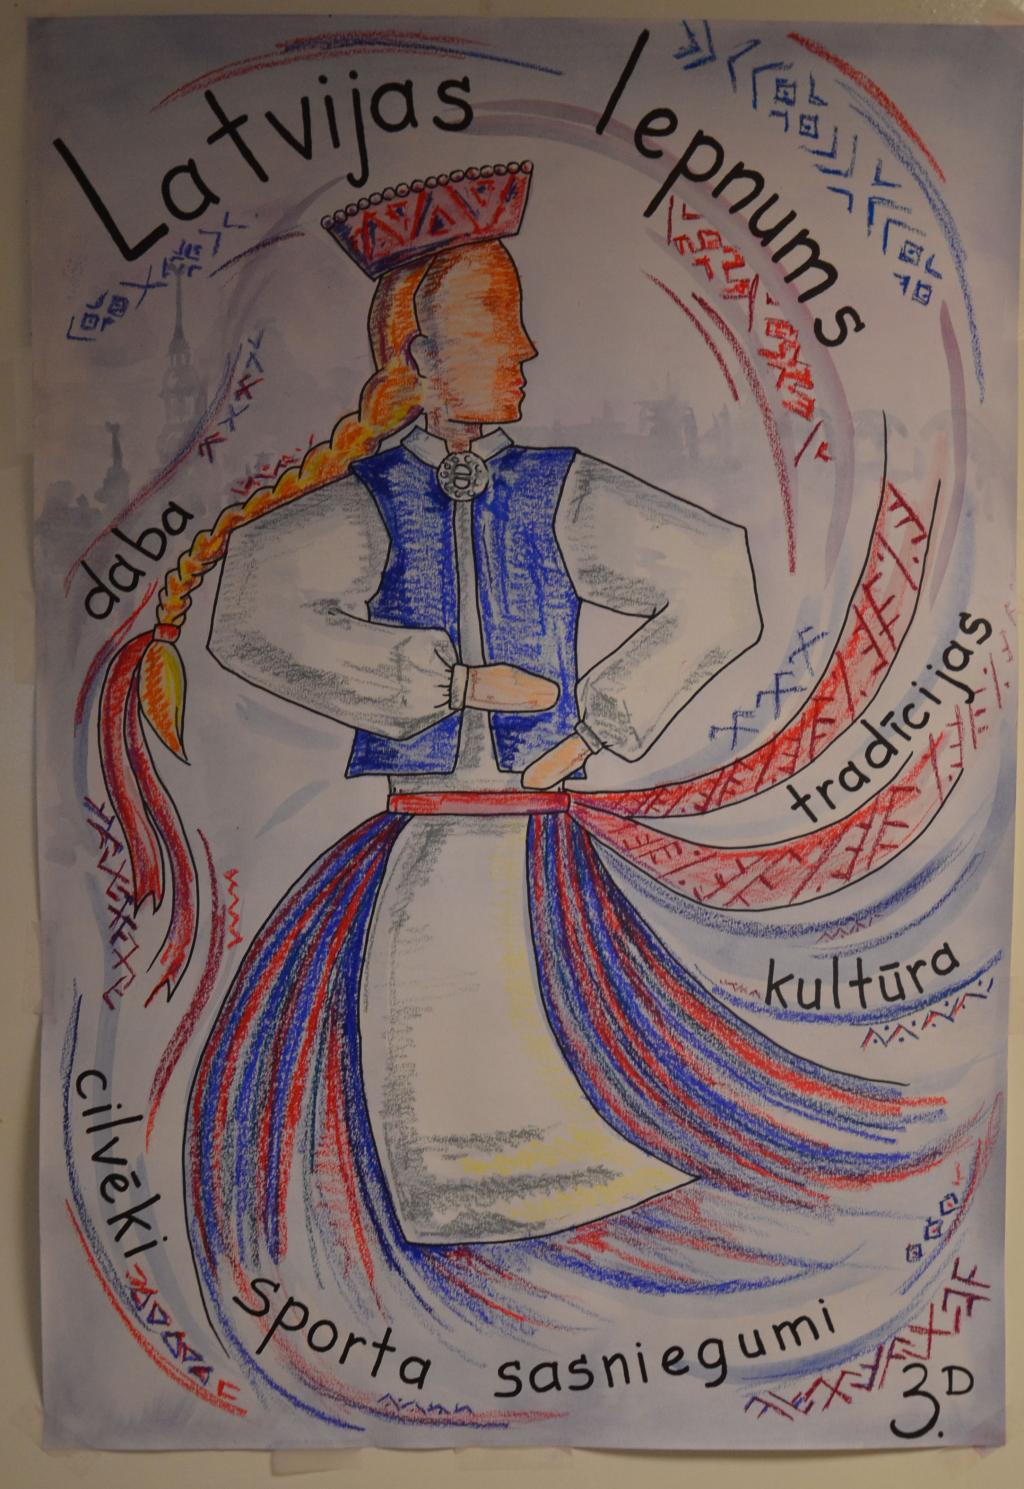 Latvijas lepnums
daba
tradīcijas
kultūra
cilvēki
sporta sasniegumi
3.D